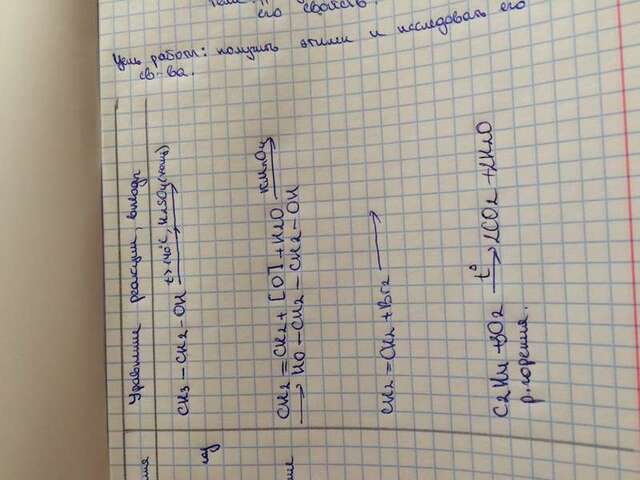 Уравнение реакции, выводы
газ
t>140°C, H2SO4(конц)
CH3 – CH2 – OH ⟶
KMnO4
CH2 = CH2 + [O] + H2O ⟶
⟶ HO – CH2 – CH2 – OH
CH2 = CH2 + Br2 ⟶
t°
C2H4 + 3O2 ⟶ 2CO2 + 2H2O
р. горения.
Цель работы: получить этилен и исследовать его
св-ва.
его свойств.